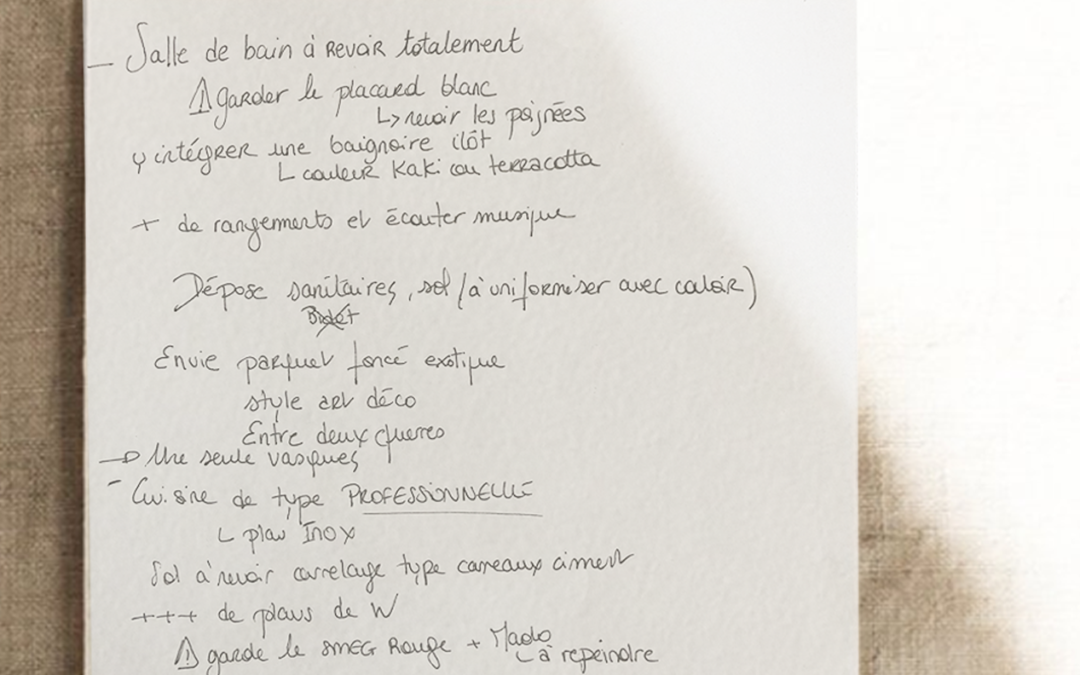 — Salle de bain à Revoir totalement
⚠ garder le placard blanc
↳ revoir les poignées
intégrer une baignoire ilôt
↳ couleur Kaki ou terracotta
+ de rangements et écouter musique
Dépose sanitaires, sol (à uniformiser avec couloir)
Bidet
Envie parquet foncé exotique
style art déco
Entre deux guerres
→ Une seule vasques
- Cuisine de type PROFESSIONNELLE
↳ plan Inox
Sol à revoir carrelage type carreaux ciment
+++ de plans de W
⚠ garde le SMEG Rouge + Mado
↳ à repeindre